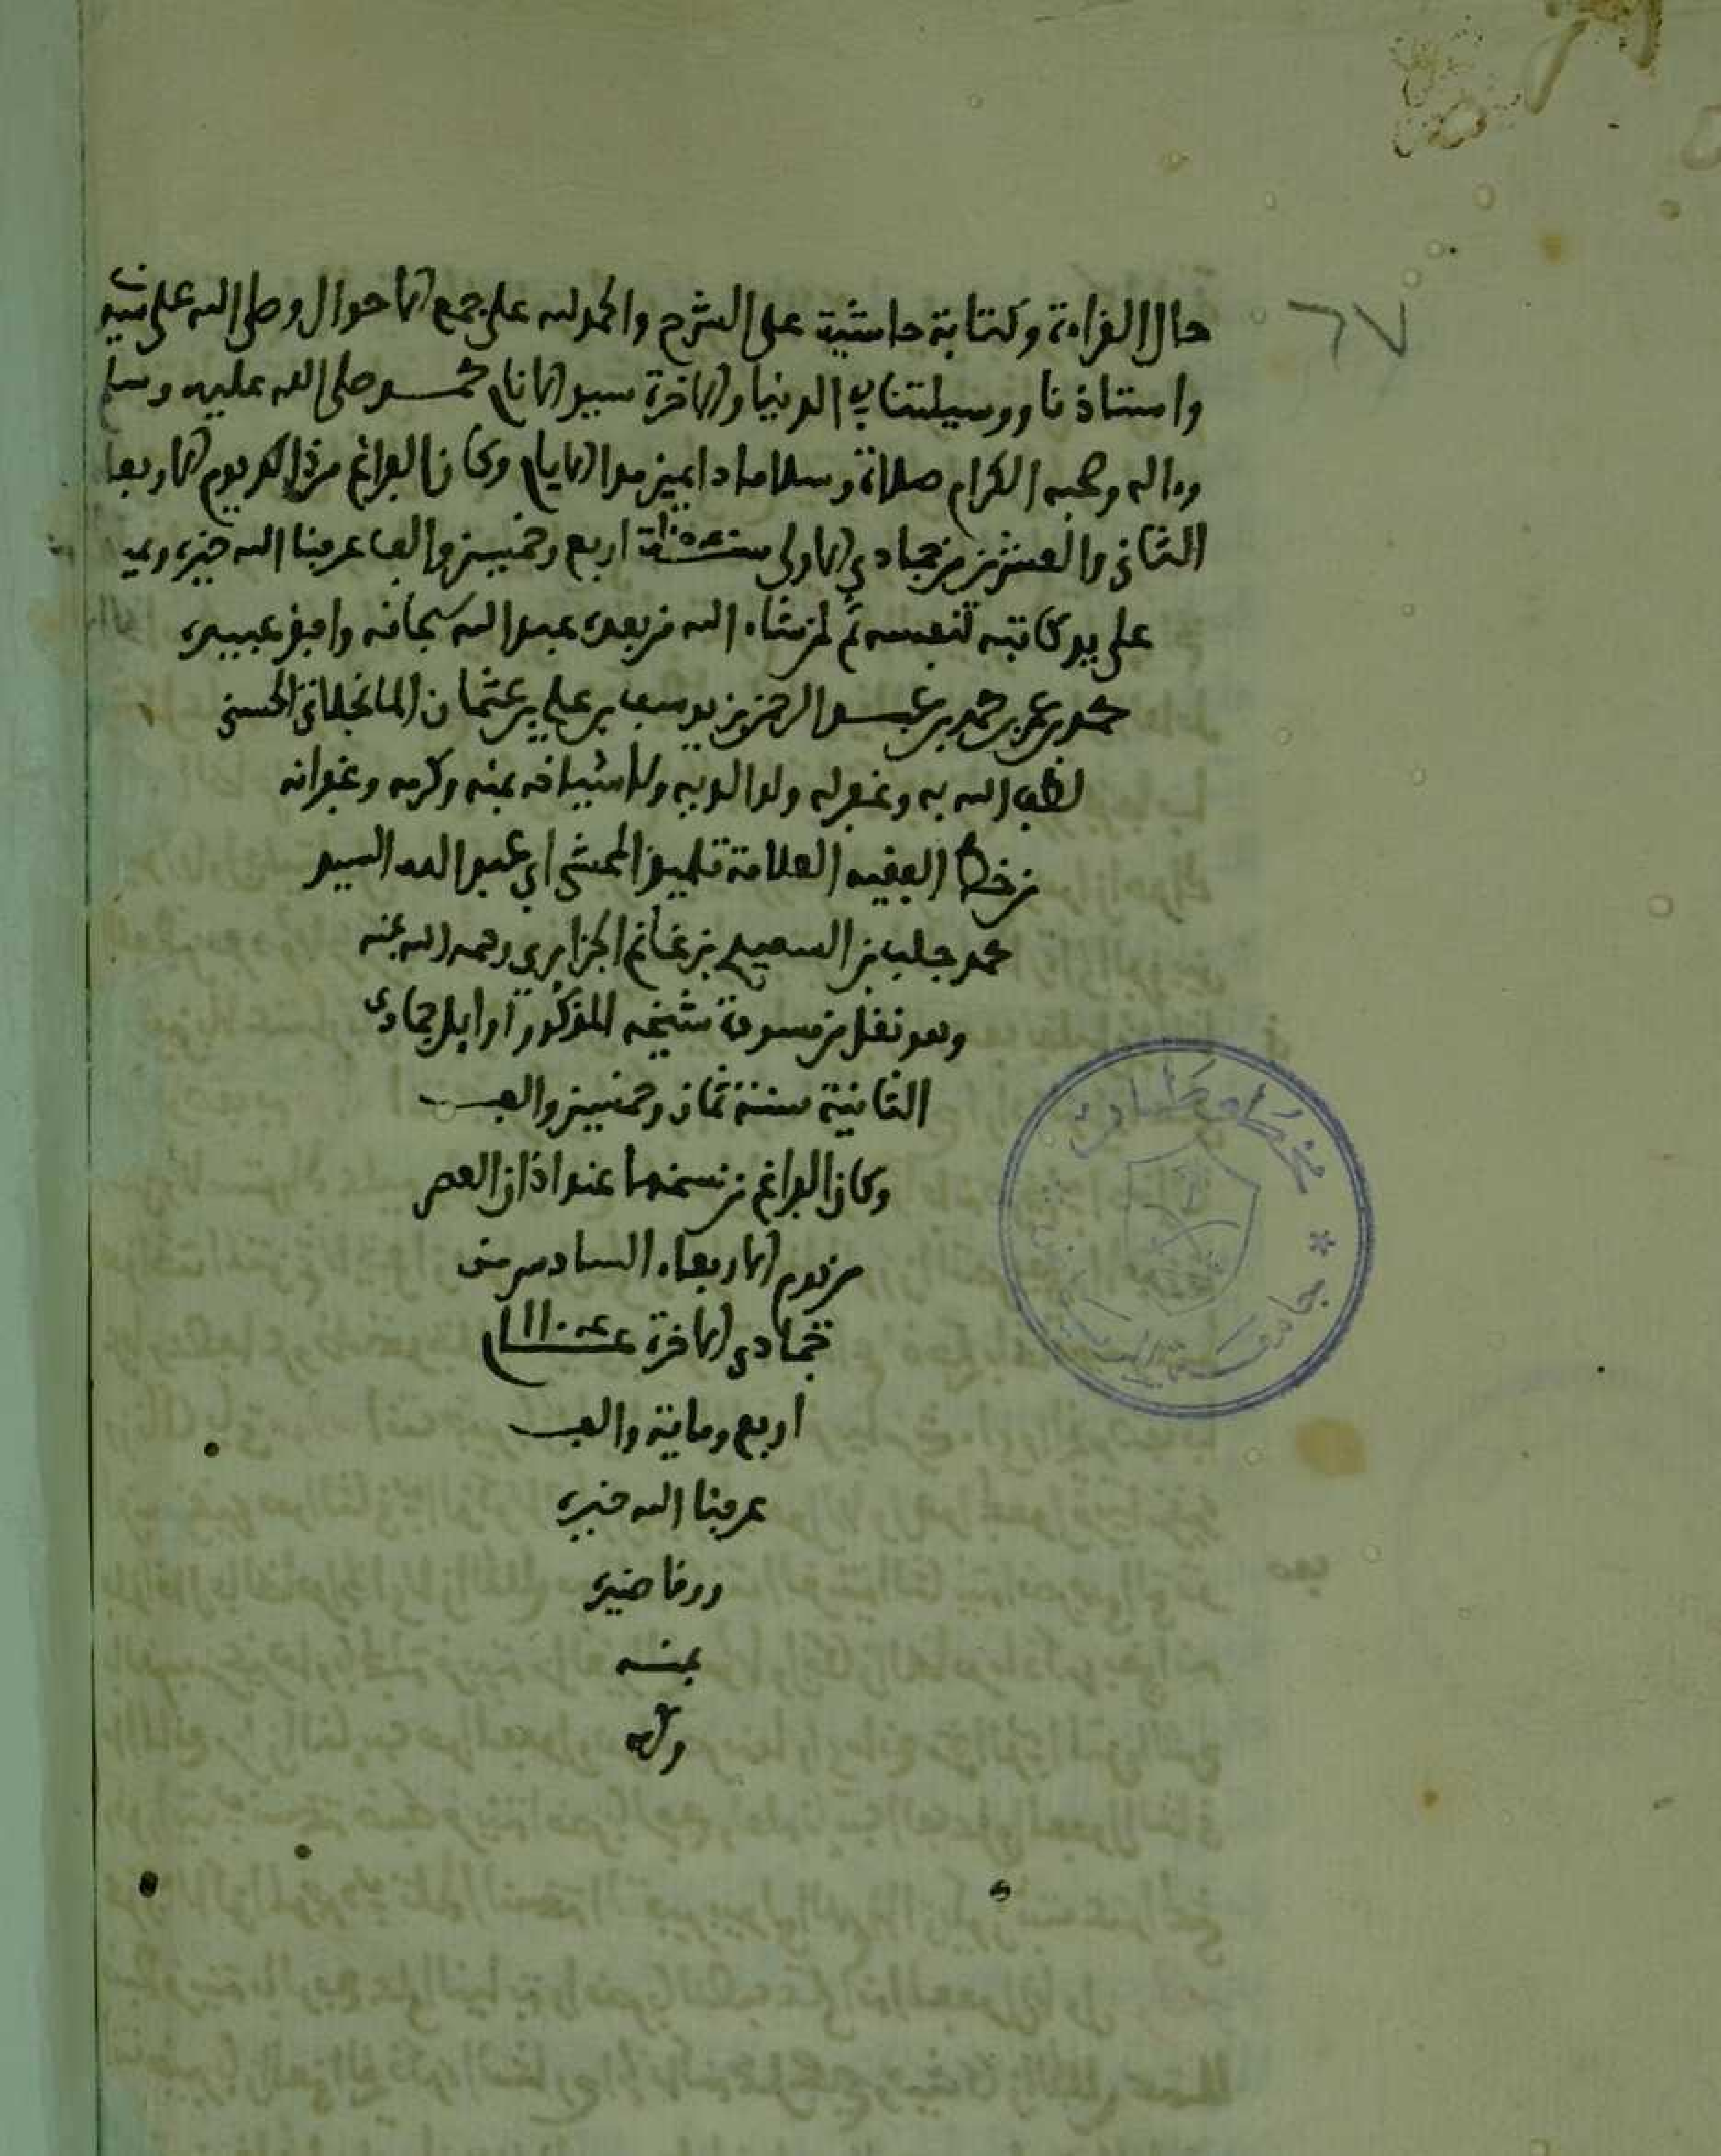 حال القراءة وكتابة حاشية على الشرح والحمد لله على جميع الاحوال وصلى الله على
واستاذنا ووسيلتنا في الدنيا والاخرة سيد الانام محمد صلى الله عليه وسلم
وءاله وصحبه الكرام صلاة وسلاما دايمين مدا الايام وكان الفراغ من يوم الاربعا
الثاني والعشرين من جمادي الاولى سنة ١٠٥٤ اربع وخمسين والف عرفنا الله خيره
على يد كاتبه لنفسه ثم لمن شاء الله من بعده عبد الله سبحانه وافقر عبيده
محمد بن عمر بن محمد بن عبد الرحمن بن يوسف بن علي بن عثمان المانجلاتي الحسني
لطف الله به وغفر له ولوالديه ولاشياخه بمنه وكرمه وغفرانه
من خط الفقيه العلامة تلميذ المحشي ابي عبد الله السيد
محمد بن السعيد بن غانم الجزايري رحمه الله بمنه
وهو نقل من مسودة شيخه المذكور اوايل جمادى
الثانية سنة ثمان وخمسين والف
وكان الفراغ من نسخها عند اذان العصر
من يوم الاربعاء السادس من
جمادي الاخرة عام ١١٠٤
اربع وماية والف
عرفنا الله خيره
ووقا ضيره
بمنه
وكرمه
٦٧
مخطوطات
* جامعة